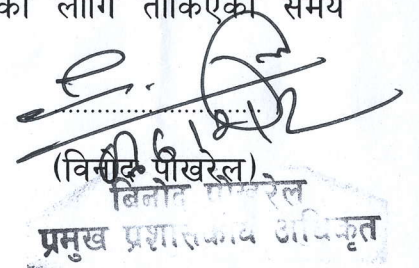 को लागि तोकिएको समय
(विनोद पोखरेल)
बिनोद पोखरेल
प्रमुख प्रशासकीय अधिकृत